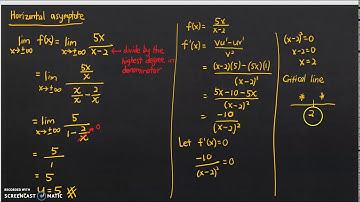 Horizontal asymptote
lim x→±∞ f(x) = lim x→±∞ 5x / x-2 ← divide by the highest degree in denominator
= lim x→±∞ (5x/x) / (x/x - 2/x)
= lim x→±∞ 5 / (1 - 2/x) → 0
= 5/1
= 5
y = 5
f(x) = 5x / x-2
f'(x) = vu' - uv' / v²
= (x-2)(5) - (5x)(1) / (x-2)²
= 5x - 10 - 5x / (x-2)²
= -10 / (x-2)²
Let f'(x) = 0
-10 / (x-2)² = 0
(x-2)² = 0
x-2 = 0
x = 2
Critical line
2
RECORDED WITH
SCREENCAST-O-MATIC